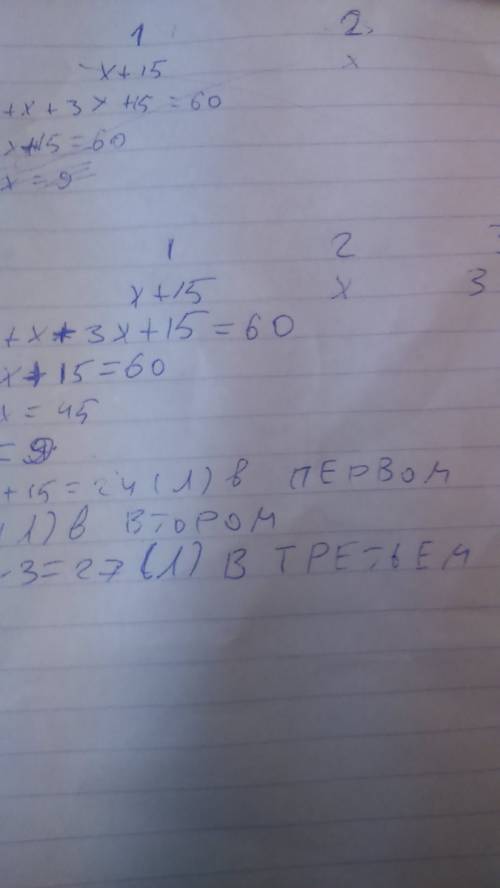 1 2
x+15 x
+x+3x+15=60
x+15=60
x=9
1 2
x+15 x 3
+x+3x+15=60
x+15=60
x=45
=9
+15=24(Л) в ПЕРВОМ
(Л) в ВТОРОМ
·3=27(Л) В ТРЕТЬЕМ